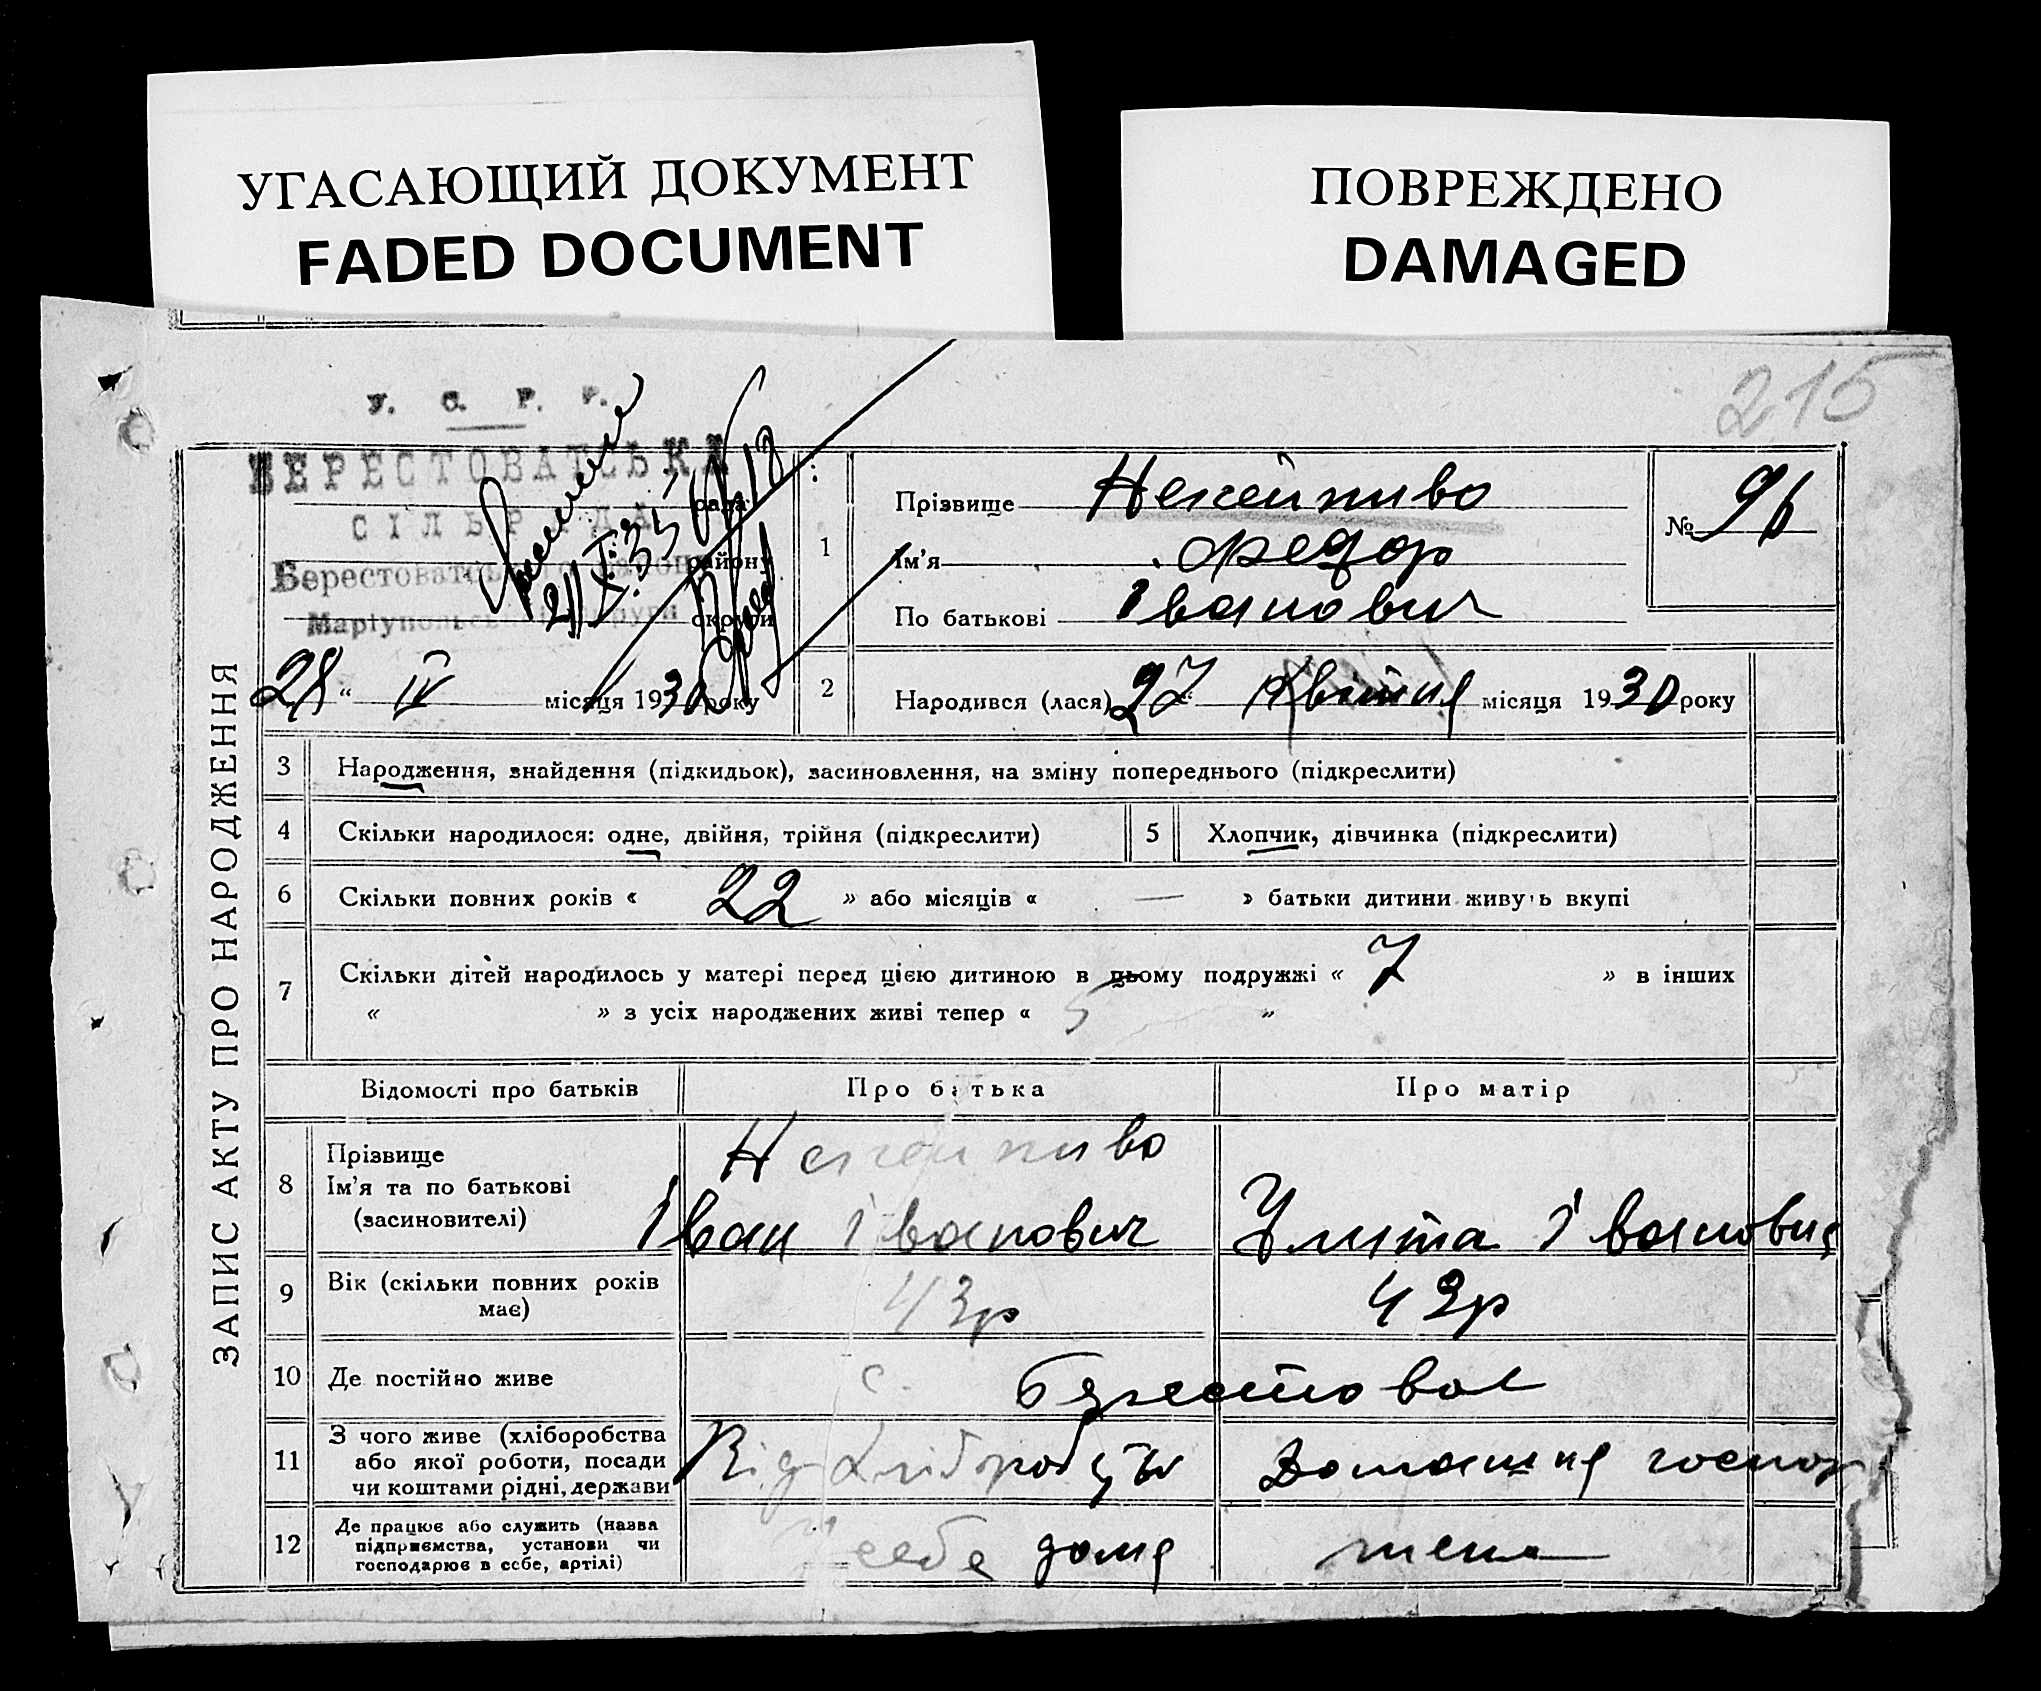 УГАСАЮЩИЙ ДОКУМЕНТ
FADED DOCUMENT
ПОВРЕЖДЕНО
DAMAGED
215
У. С. Р. Р.
БЕРЕСТОВАТСЬКА
рада
СІЛЬРАДА
Берестоватського району
Маріупольської округи
28 " IV місяця 1930 року
ЗАПИС АКТУ ПРО НАРОДЖЕННЯ
1
Прізвище Нехейпиво
Ім'я Федор
По батькові Іванович
№ 96
2 Народився (лася) 27 " Квітня місяця 1930 року
3 Народження, знайдення (підкидьок), засиновлення, на зміну попереднього (підкреслити)
4 Скільки народилося: одне, двійня, трійня (підкреслити) 5 Хлопчик, дівчинка (підкреслити)
6 Скільки повних років « 22 » або місяців « — » батьки дитини живуть вкупі
7 Скільки дітей народилось у матері перед цією дитиною в цьому подружжі « 7 » в інших
« » з усіх народжених живі тепер « 5 "
Відомості про батьків Про батька Про матір
8 Прізвище
Ім'я та по батькові
(засиновителі)
Нехейпиво
Іван Іванович Улита Івановна
9 Вік (скільки повних років
має)
43р 43р
10 Де постійно живе с. Берестовал
11 З чого живе (хліборобства
або якої роботи, посади
чи коштами рідні, держави
Від Хліборобства Домашня господ
12 Де працює або служить (назва
підприємства, установи чи
господарює в себе, артілі)
себе дома